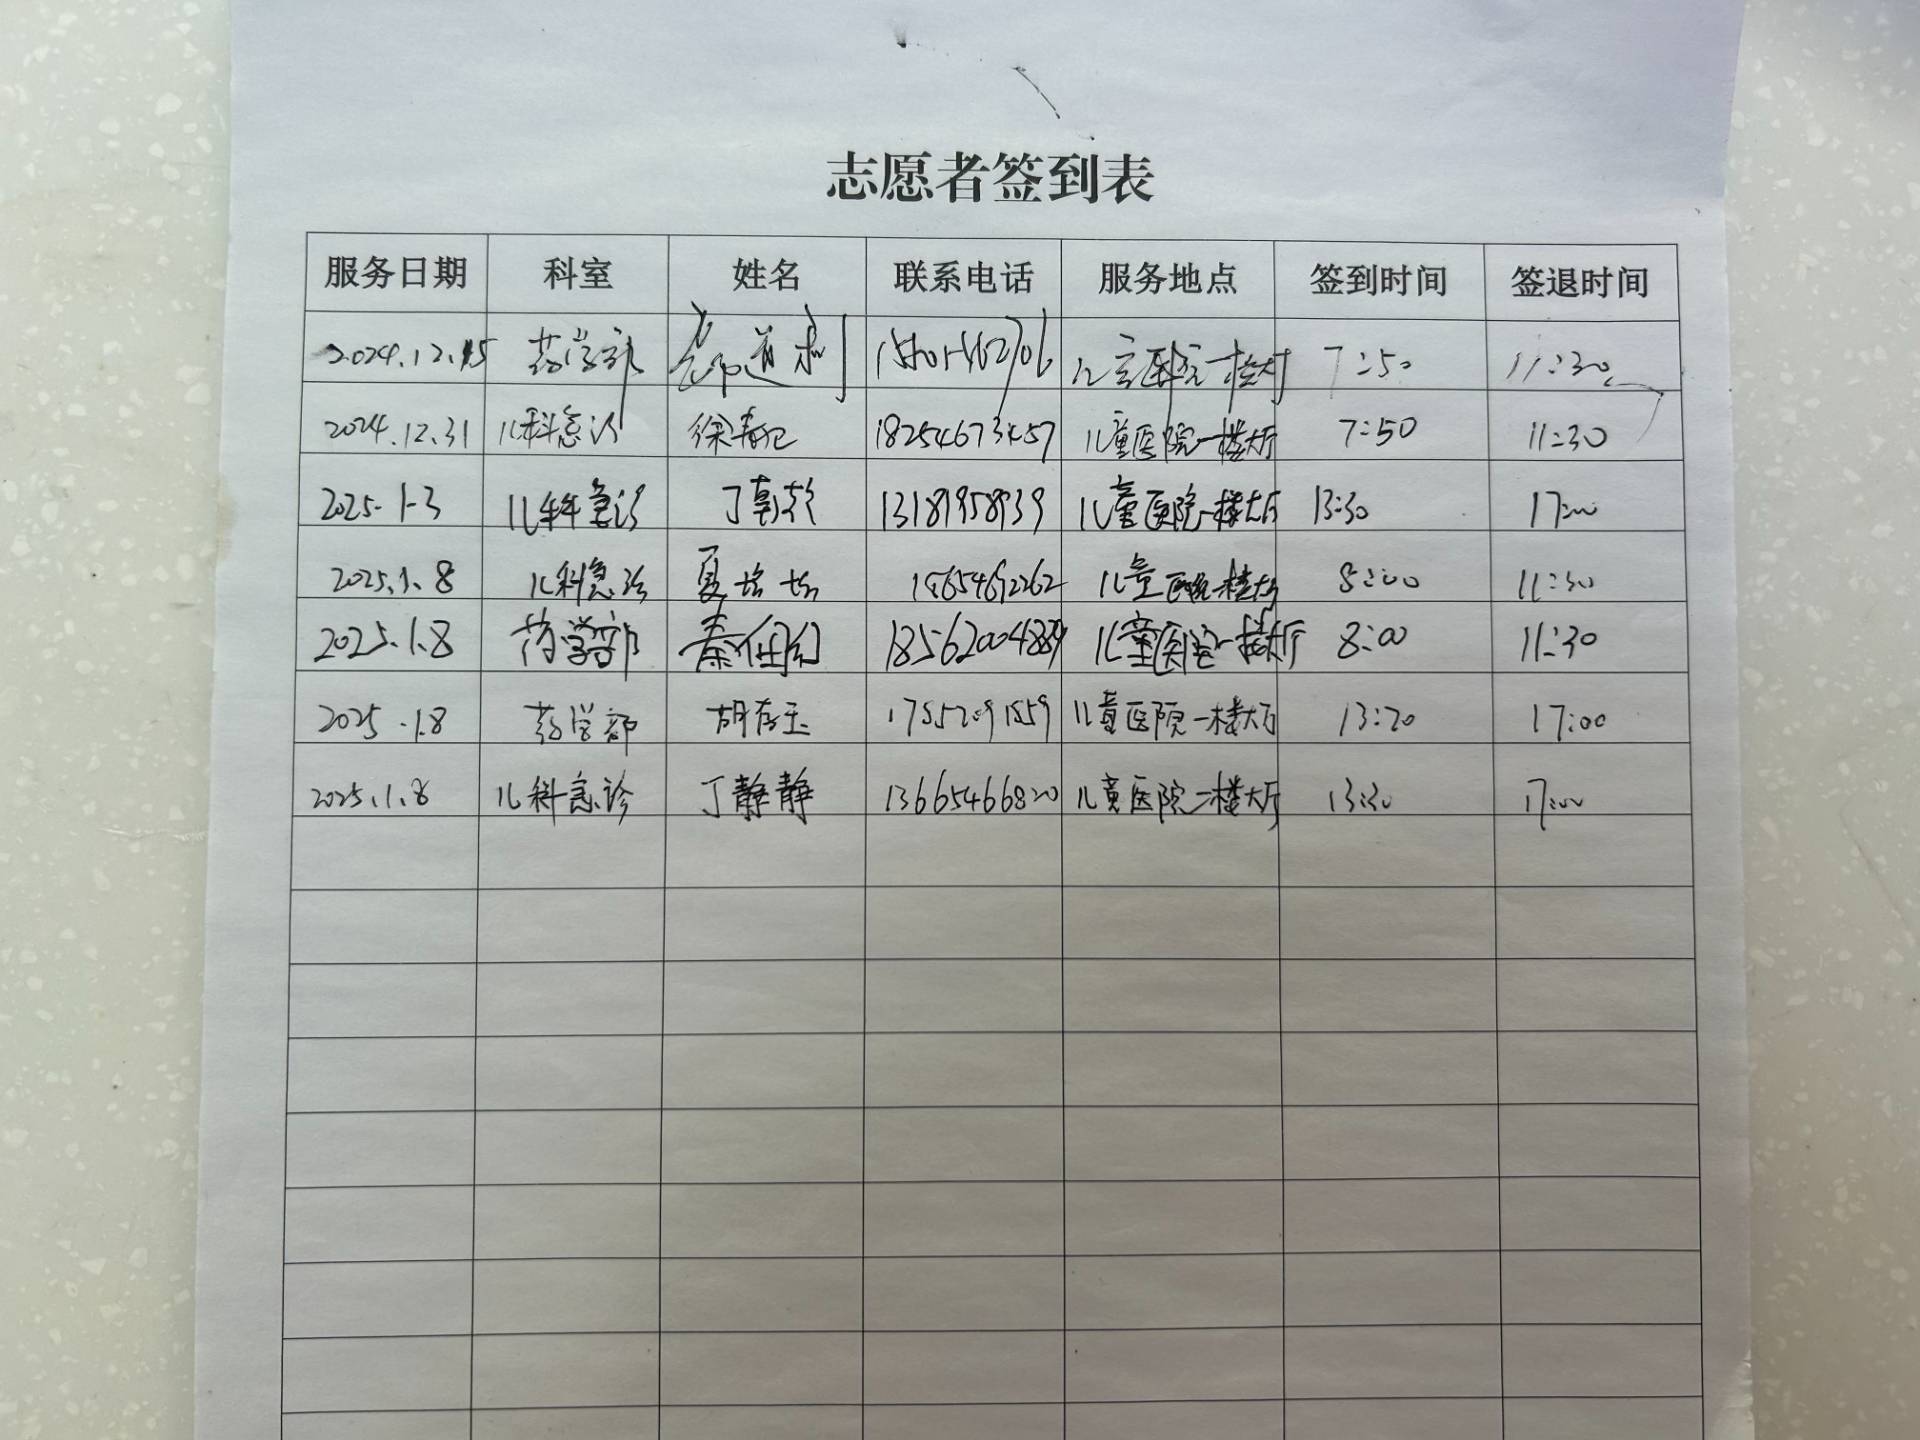 志愿者签到表
服务日期 科室 姓名 联系电话 服务地点 签到时间 签退时间
2024.12.15 药学部 儿童医院一楼大厅 7:50 11:30
2024.12.31 儿科急诊 徐春 18254673457 儿童医院一楼大厅 7:50 11:30
2025.1.3 儿科急诊 丁 13181958939 儿童医院一楼大厅 13:30 17:00
2025.1.8 儿科急诊 夏培培 18654692262 儿童医院一楼大厅 8:00 11:30
2025.1.8 药学部 秦 儿童医院一楼大厅 8:00 11:30
2025.1.8 药学部 胡存玉 17552091559 儿童医院一楼大厅 13:20 17:00
2025.1.8 儿科急诊 丁静静 13665466820 儿童医院二楼大厅 13:30 17:00